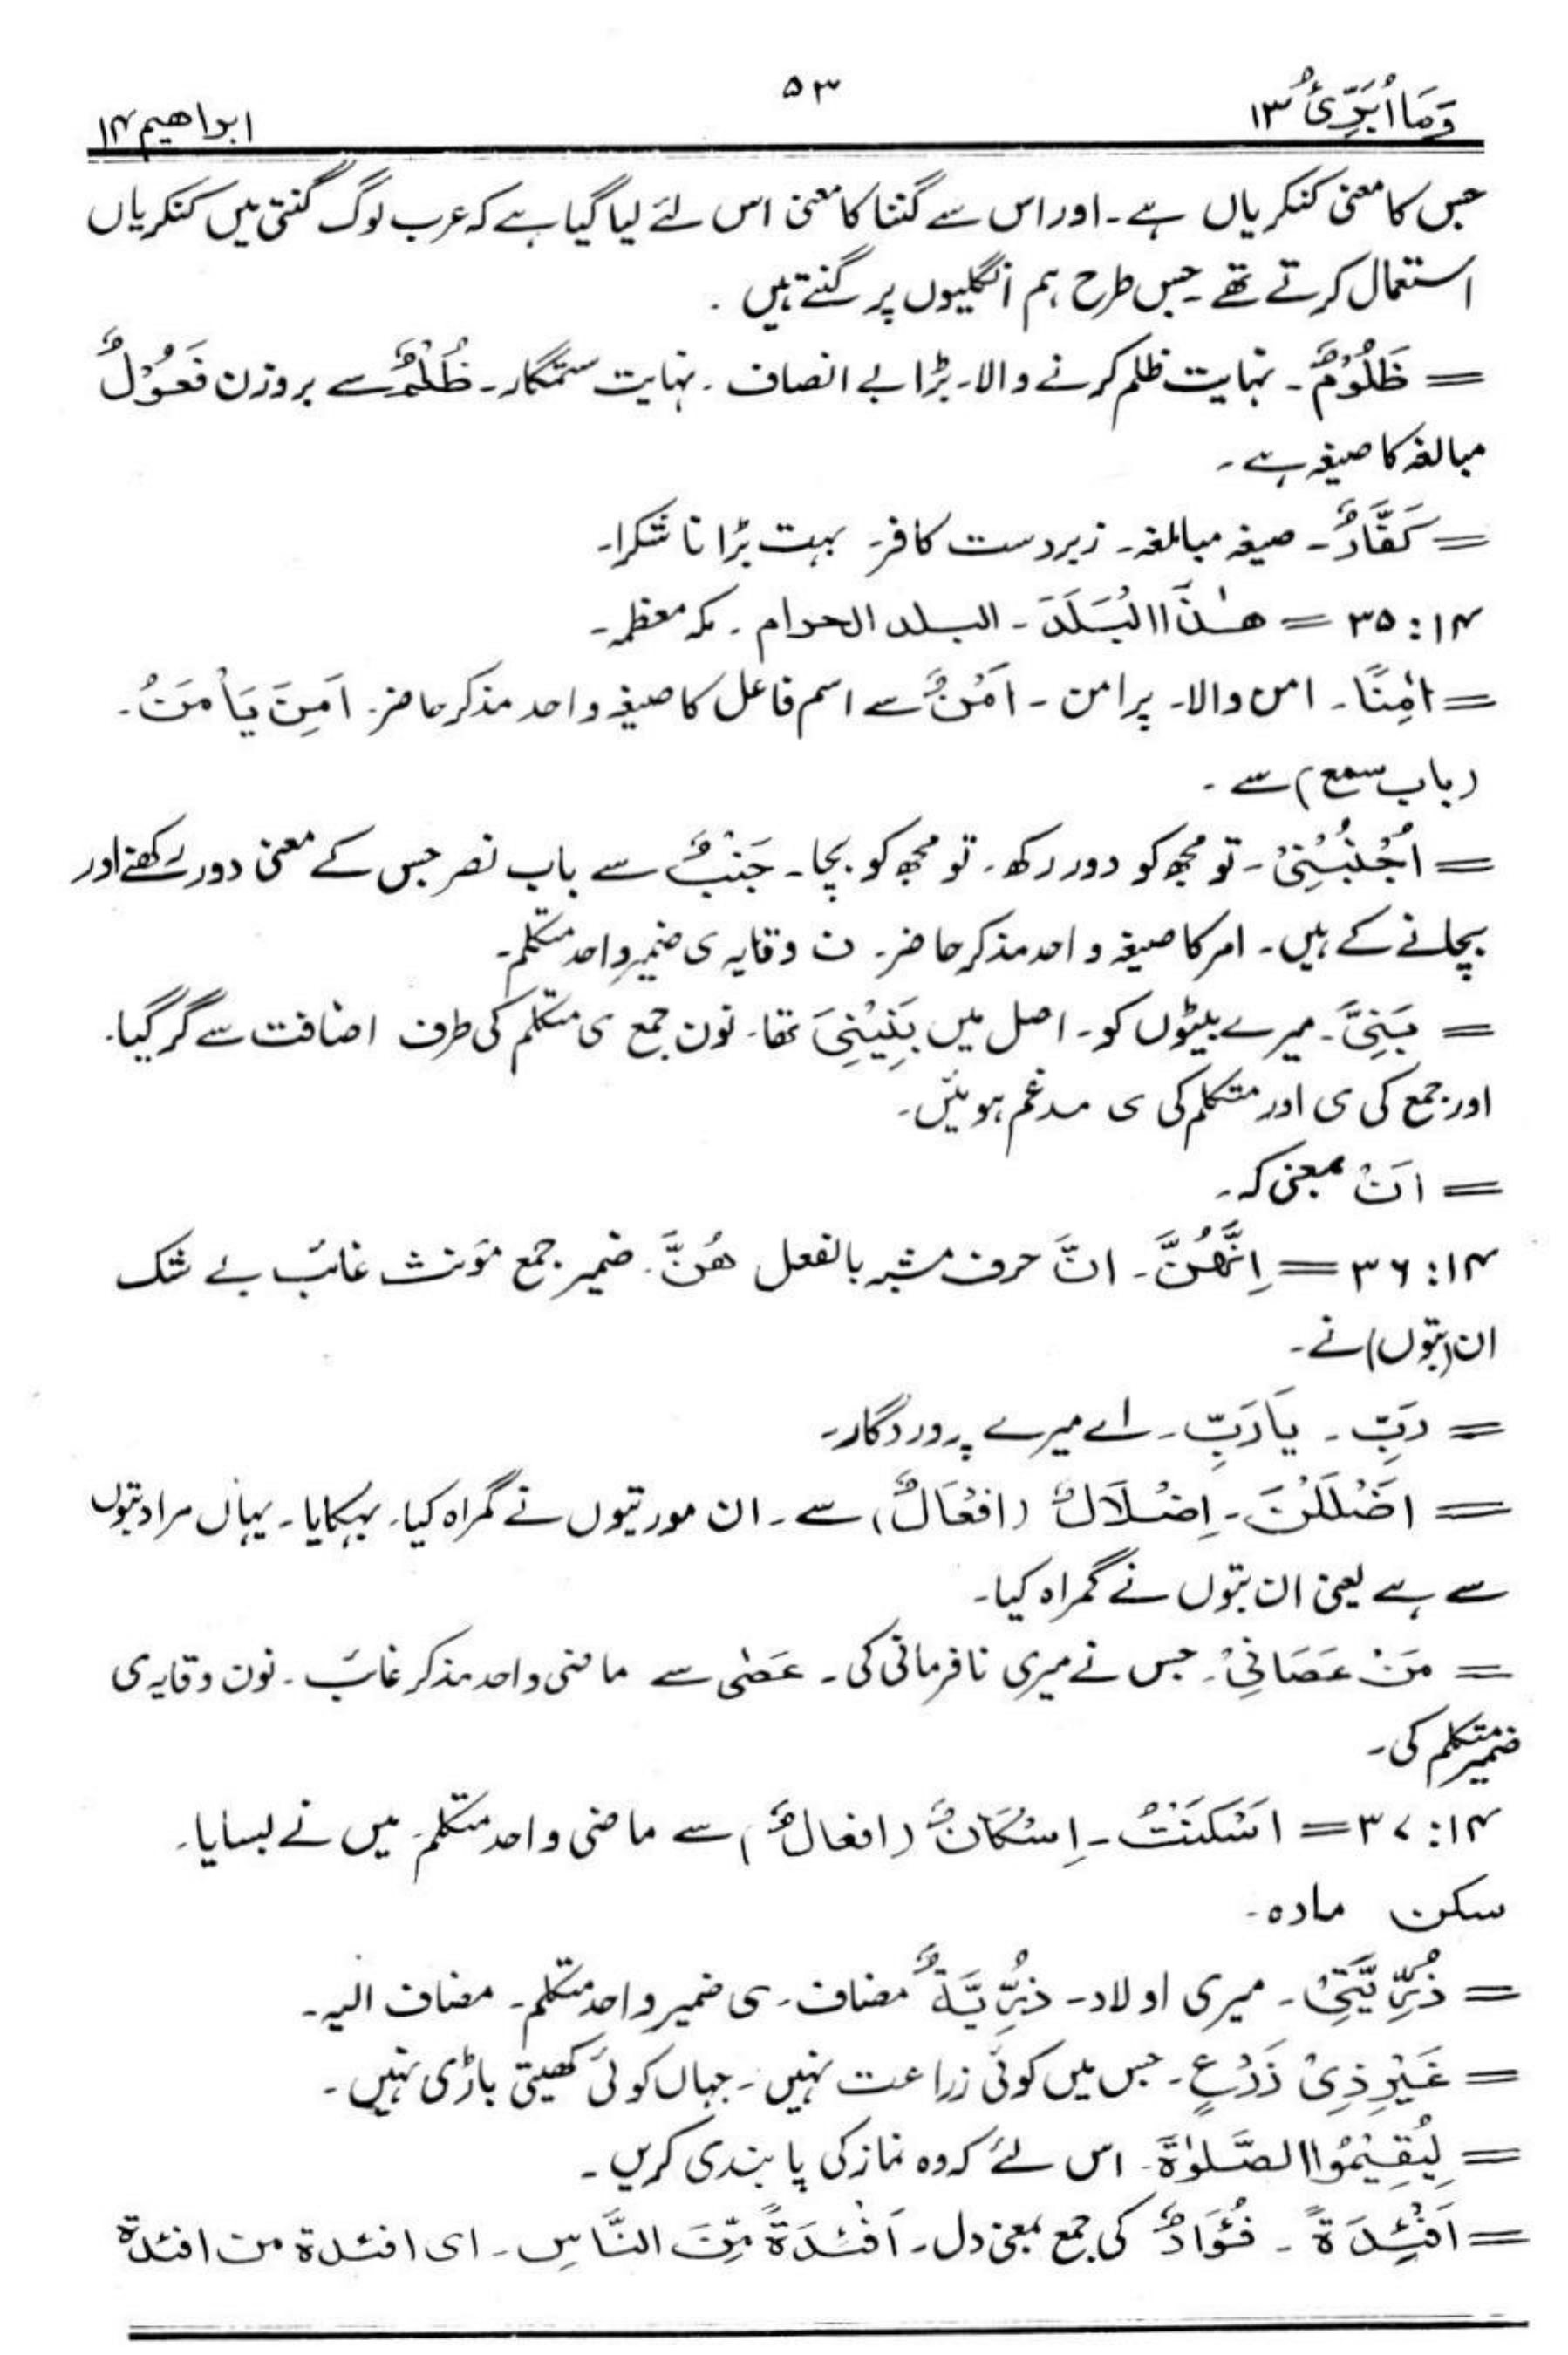 وَمَا اُبَرِّئُ ۱۳
۵۳
ابراھیم ۱۴
جس کا معنی کنکریاں ہے۔ اور اس سے گننا کا معنی اس لئے لیا گیا ہے کہ عرب لوگ گنتی میں کنکریاں
استعمال کرتے تھے۔ جس طرح ہم انگلیوں پر گنتے ہیں ۔
= ظَلُوْمٌ۔ نہایت ظلم کرنے والا۔ بڑا بے انصاف ۔ نہایت ستمگار۔ ظُلْمٌ سے بروزن فَعُوْلٌ
مبالغہ کا صیغہ ہے۔
= کَفَّارٌ۔ صیغہ مبالغہ۔ زبردست کافر۔ بہت بڑا ناشکرا۔
۱۴:۳۵ = ھٰذَا الْبَلَدَ۔ البلد الحرام ۔ مکہ معظمہ۔
= اٰمِنًا۔ امن والا۔ پر امن ۔ اَمْنٌ سے اسم فاعل کا صیغہ واحد مذکر حاضر۔ اَمِنَ یَاْمَنُ۔
(باب سمع) سے ۔
= اُجْنُبْنِیْ۔ تو مجھ کو دور رکھ۔ تو مجھ کو بچا۔ جَنْبٌ سے باب نصر جس کے معنی دور رکھنے اور
بچانے کے ہیں۔ امر کا صیغہ واحد مذکر حاضر۔ ن وقایہ ی ضمیر واحد متکلم۔
= بَنِیَّ۔ میرے بیٹوں کو۔ اصل میں بَنِیْنِیَ تھا۔ نون جمع ی متکلم کی طرف اضافت سے گر گیا۔
اور جمع کی ی اور متکلم کی ی مدغم ہوئیں۔
= اَنْ بمعنی کہ۔
۱۴:۳۶ = اِنَّھُنَّ۔ اِنَّ حرف مشبہ بالفعل ھُنَّ۔ ضمیر جمع مؤنث غائب بے شک
ان (بتوں) نے۔
= رَبِّ ۔ یَا رَبِّ ۔ اے میرے پروردگار۔
= اَضْلَلْنَ۔ اِضْلَالٌ (اِفْعَالٌ) سے ۔ ان مورتیوں نے گمراہ کیا۔ بہکایا۔ یہاں مراد بتوں
سے ہے یعنی ان بتوں نے گمراہ کیا۔
= مَنْ عَصَانِیْ۔ جس نے میری نافرمانی کی۔ عَصٰی سے ماضی واحد مذکر غائب ۔ نون وقایہ ی
ضمیر متکلم کی۔
۱۴:۳۷ = اَسْکَنْتُ۔ اِسْکَانٌ (افعالٌ) سے ماضی واحد متکلم۔ میں نے بسایا۔
سکن مادہ۔
= ذُرِّیَّتِیْ۔ میری اولاد۔ ذُرِّیَّۃٌ مضاف۔ ی ضمیر واحد متکلم۔ مضاف الیہ۔
= غَیْرِ ذِیْ زَرْعٍ۔ جس میں کوئی زراعت نہیں۔ جہاں کوئی کھیتی باڑی نہیں۔
= لِیُقِیْمُوا الصَّلٰوۃَ۔ اس لئے کہ وہ نماز کی پابندی کریں۔
= اَفْئِدَۃً ۔ فُؤَادٌ کی جمع بمعنی دل۔ اَفْئِدَۃً مِّنَ النَّاسِ۔ ای افئدۃ من افئدۃ